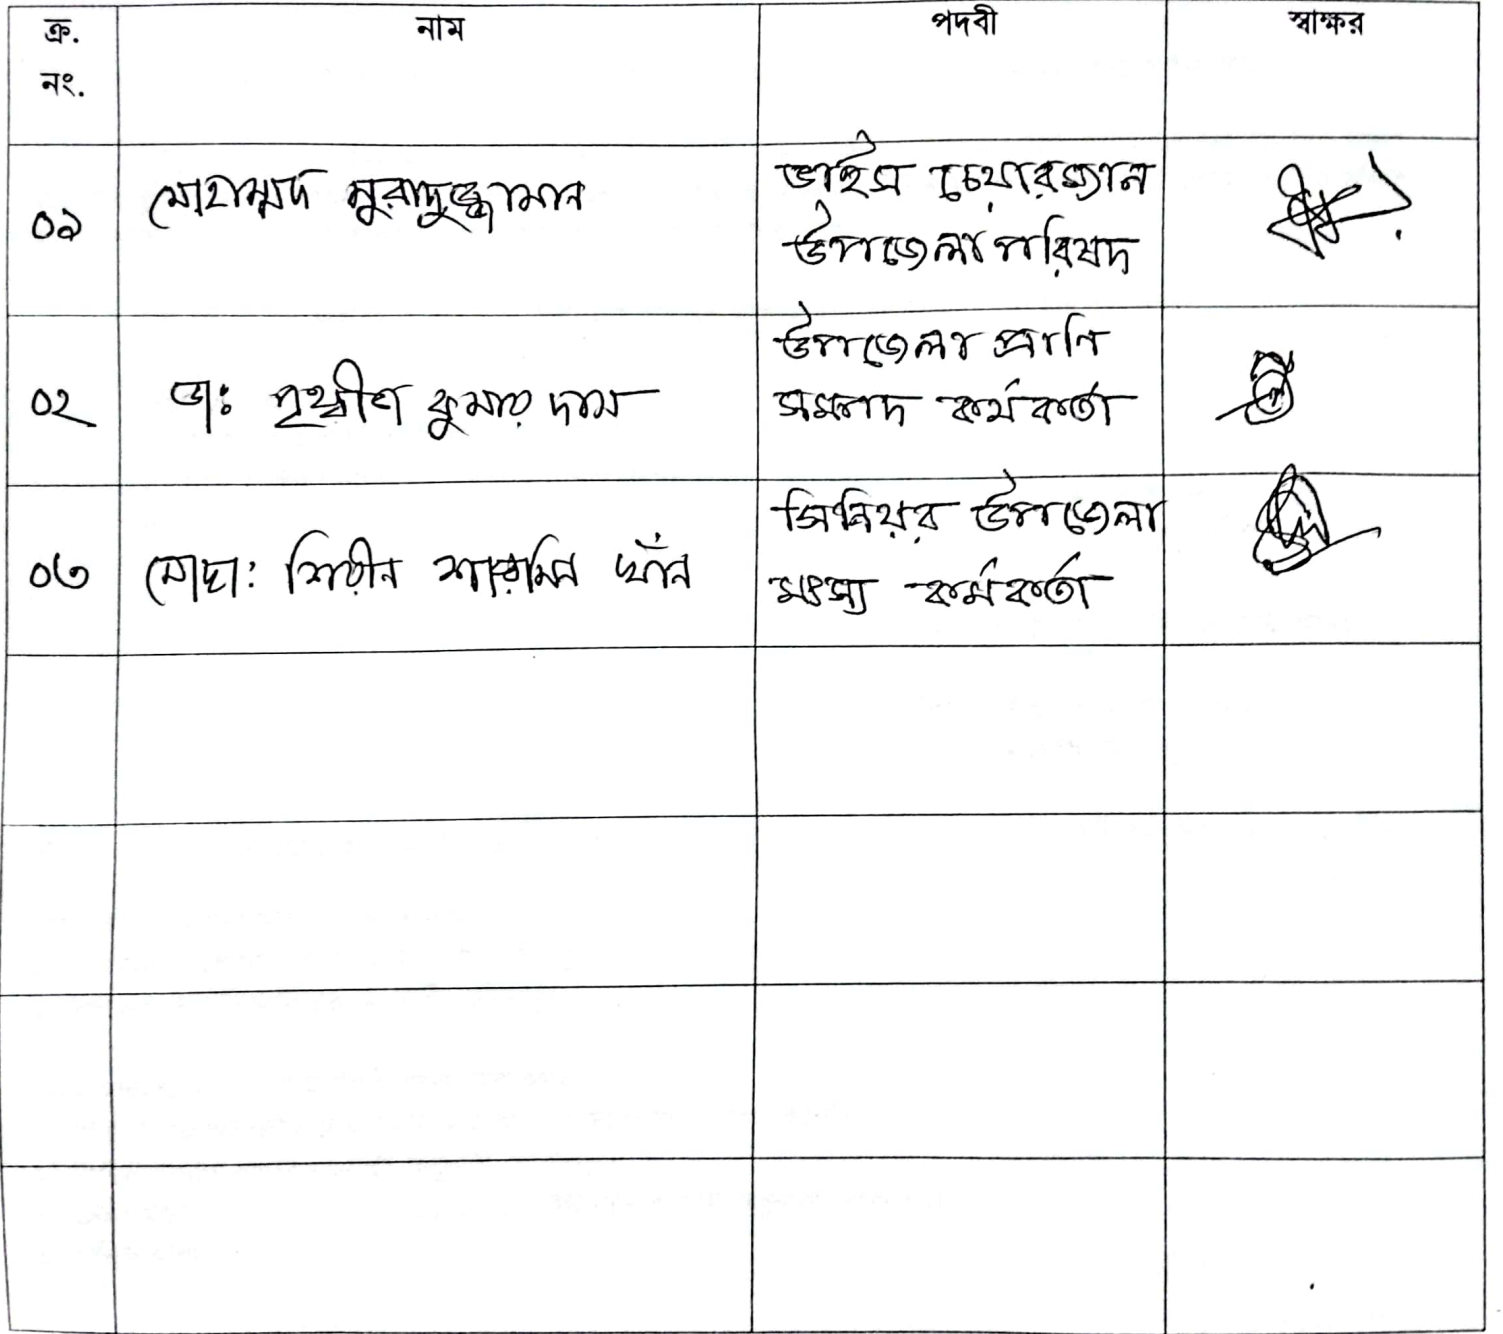 ক্র. নাম পদবী স্বাক্ষর
নং.
০১ মোহাম্মদ মুরাদুজ্জামান ভাইস চেয়ারম্যান
উপজেলা পরিষদ
০২ ডা: পৃথ্বীশ কুমার দাস উপজেলা প্রাণি
সম্পদ কর্মকর্তা
০৩ মোছা: শিরীন শারমিন খাঁন সিনিয়র উপজেলা
মৎস্য কর্মকর্তা